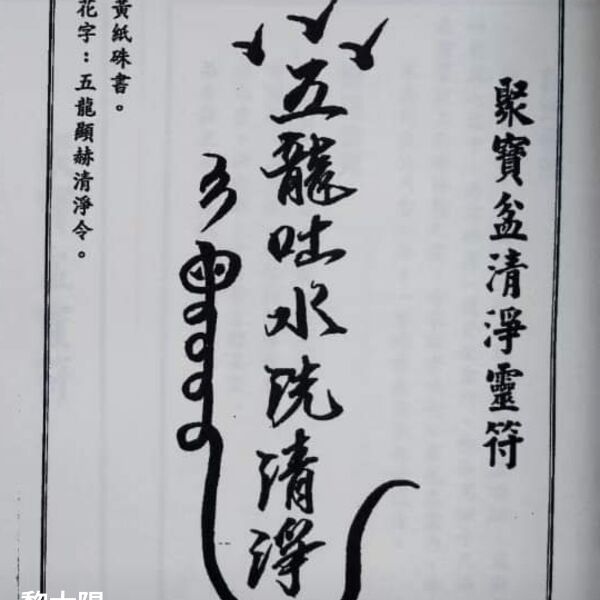 聚寶盆清淨靈符
五龍吐水洗清淨
黃紙硃書。
花字：五龍顯赫清淨令。